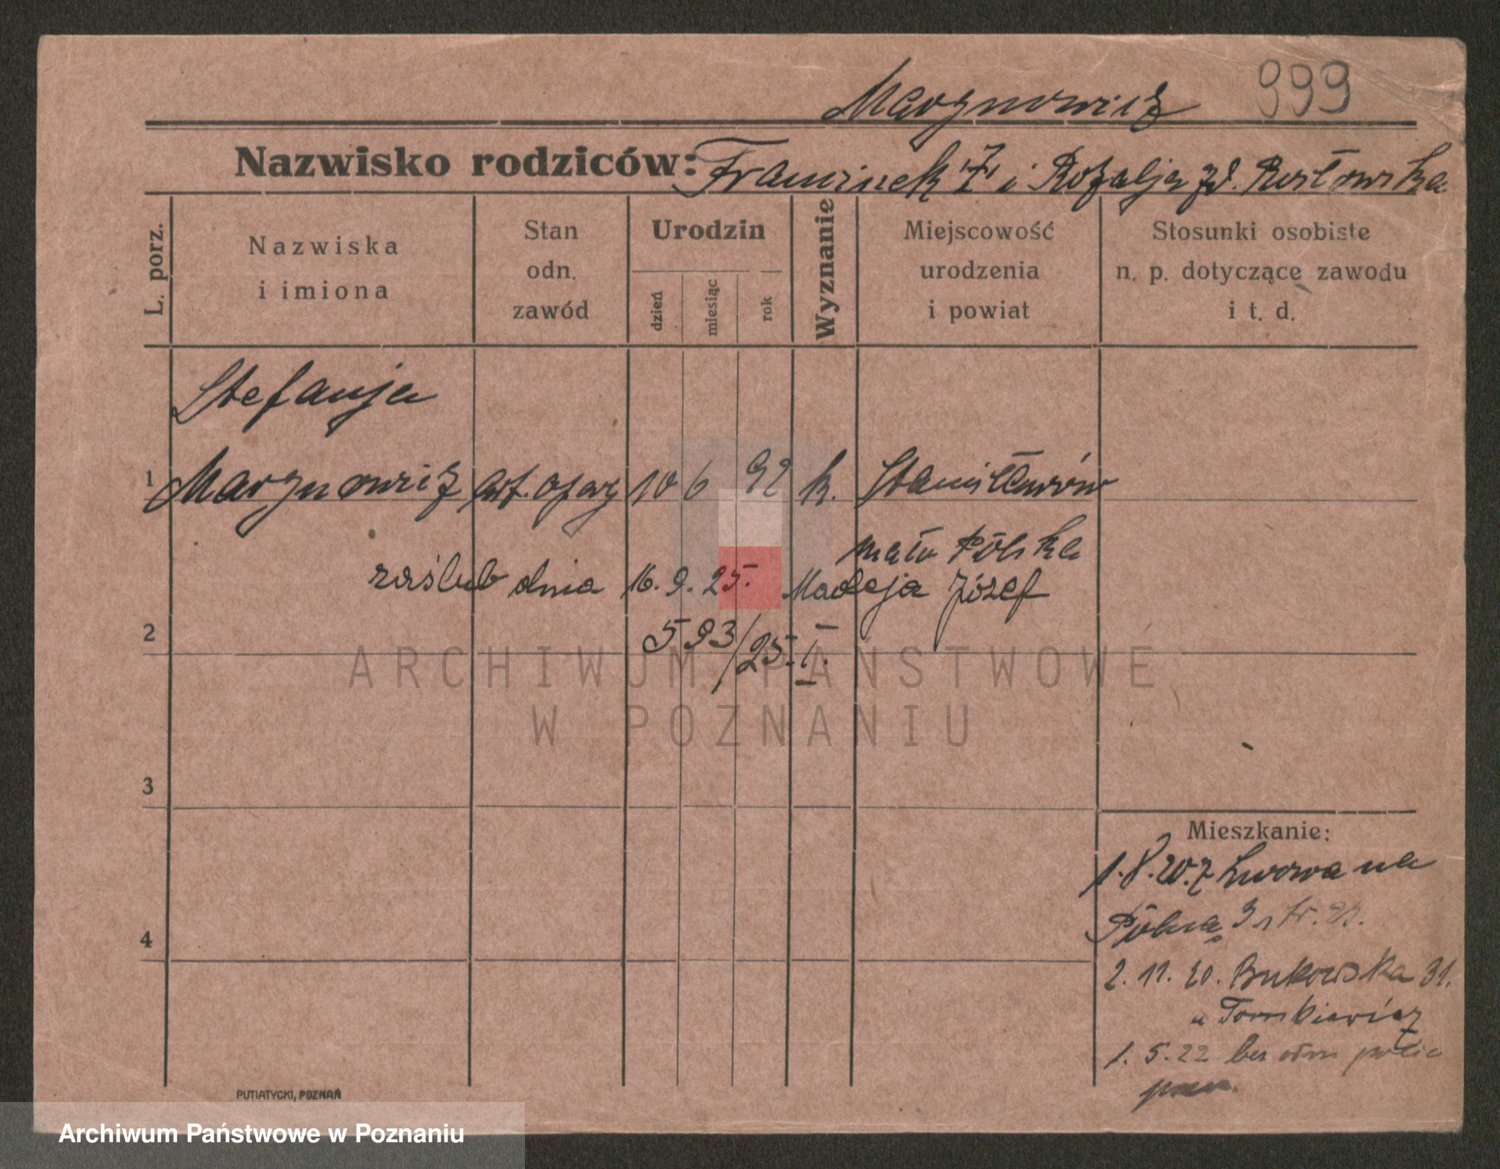 Marynowicz 999
Nazwisko rodziców: Franciszek Z i Rozalja zd. Rostowska
L. porz.
Nazwiska
i imiona
Stan
odn.
zawód
Urodzin
dzień
miesiąc
rok
Wyznanie
Miejscowość
urodzenia
i powiat
Stosunki osobiste
n. p. dotyczące zawodu
i t. d.
Stefanja
1 Marynowicz art. opery 10 6 92 k. Stanisławów
mało Polska
zaślub dnia 16. 9. 25. Madeja Józef
2 593/25. I.
3
4
Mieszkanie:
1. 8. 20. z Lwowa na
Polna 3
2. 11. 20. Bukowska 31.
u Tomkiewicz
1. 5. 22 bez
PUTIATYCKI, POZNAŃ
ARCHIWUM PAŃSTWOWE
W POZNANIU
Archiwum Państwowe w Poznaniu